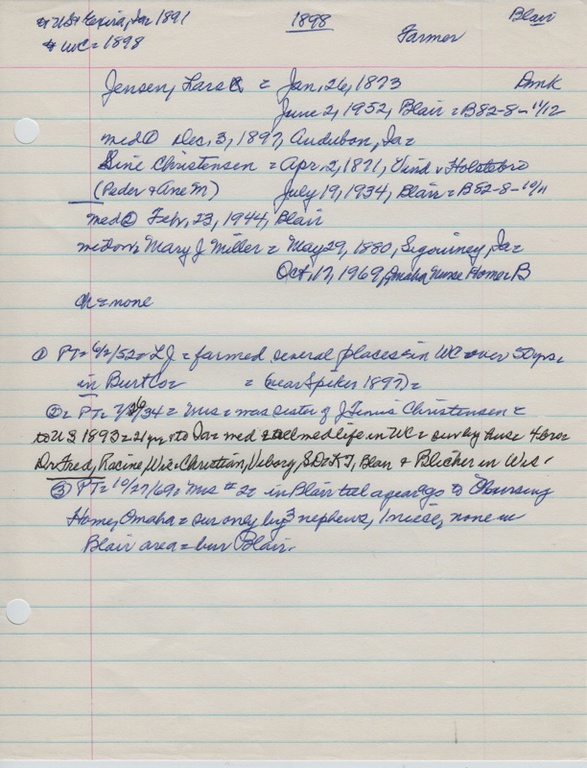 * US & Exira, Ia 1891 1898 Blair
* WC = 1898 Farmer
Jensen, Lars = Jan. 26, 1873 Dmk
June 2, 1952, Blair = B82-8-11/12
med ① Dec. 3, 1897, Audubon, Ia =
Sine Christensen = Apr. 2, 1871, Vind v Holstebro
(Peder & Ane M) July 19, 1934, Blair = B82-8-10/11
med ② Feb. 23, 1944, Blair
Mary J. Miller = May 29, 1880, Sigourney, Ia =
Oct. 17, 1969, Omaha Nurse Home = B
ch = none
① PT = 6/2/52 = LJ = farmed several places in WC = over 50 yrs.
in Burt Co = (near Spiker 1897) =
②= PT = = Mrs = was sister of J. Tinus Christensen =
to US 1893 = 21 yr = to Ia = med = all med life in WC = surv by husb 4 bros
Dr Fred, Racine, Wis = Christian, Viborg, SD = KT, Blair & Blicher in Wis.
③ PT = 10/27/69 = Mrs #2 = in Blair til a year ago to Nursing
Home, Omaha = sur only by 3 nephews, 1 niece, none in
Blair area = bur Blair.